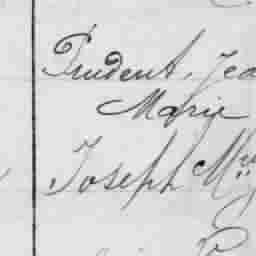 Prudent, Jea
Marie
Joseph